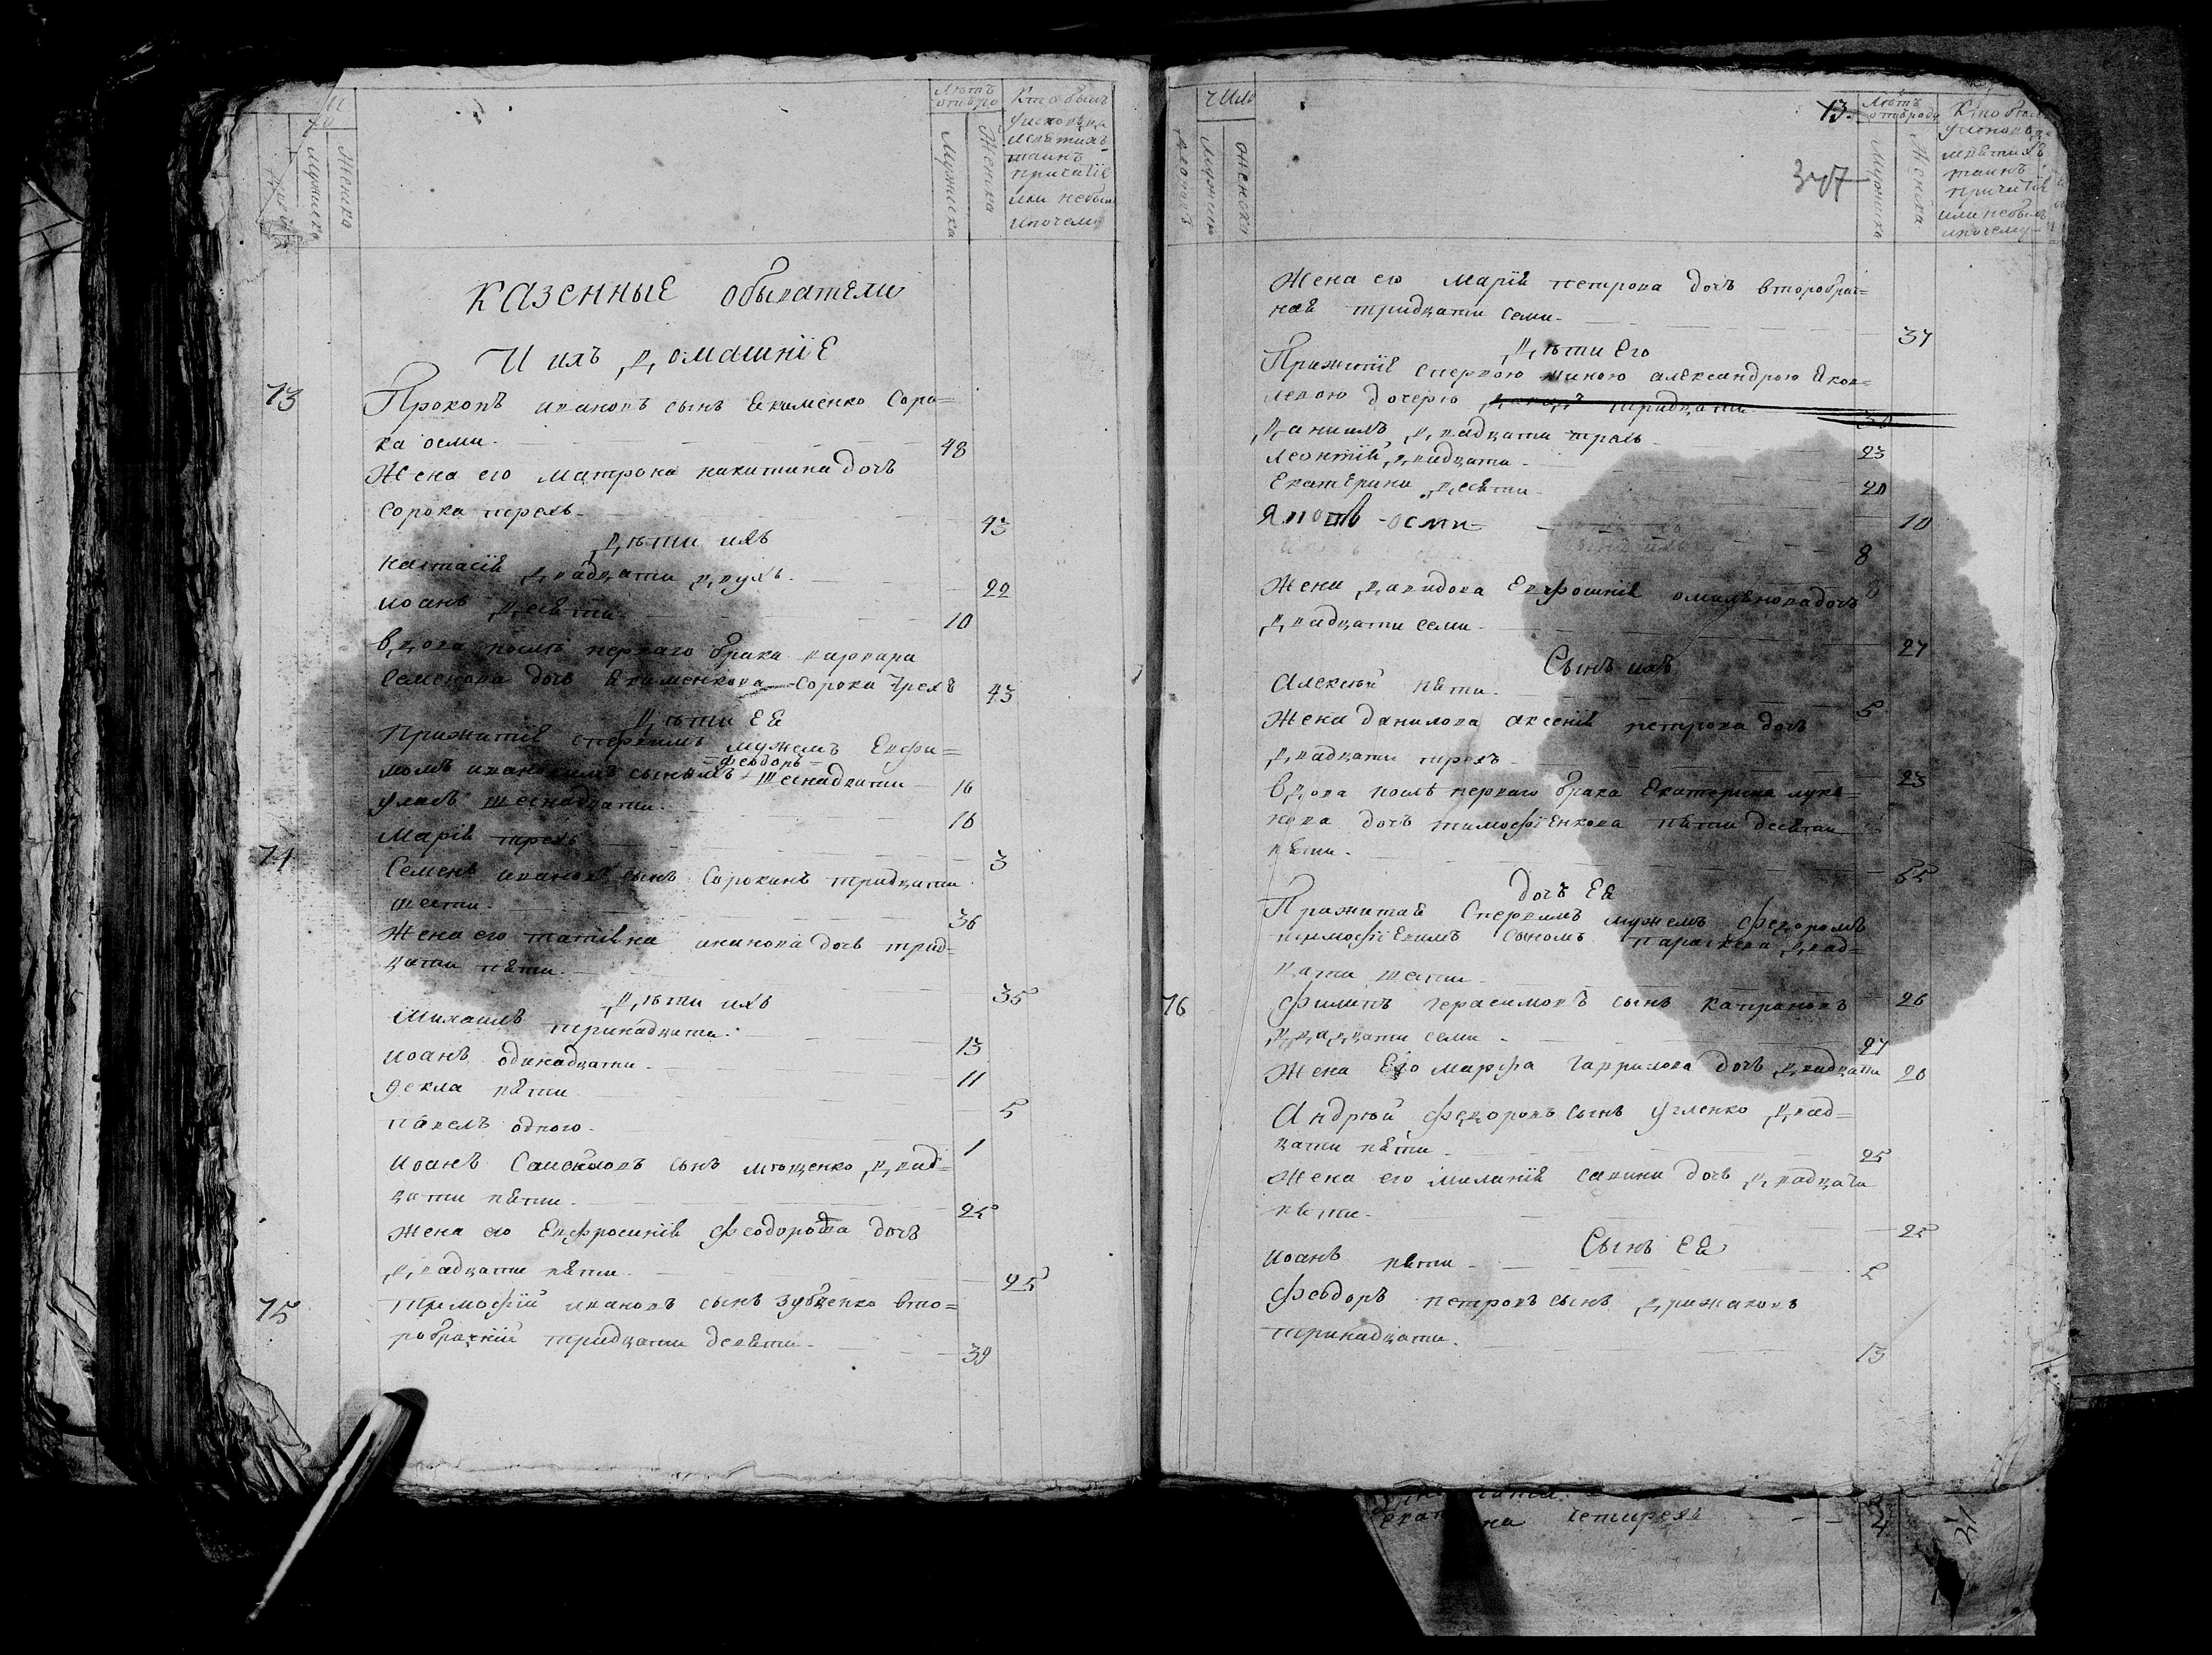 Лѣтъ
отъ ро
Кто былъ
у исповѣди
и святыхъ
таинъ
причастія
или небылъ
и почему
Мужеска
Женска
Мужеска
Женска
Казенные обыватели
И ихъ домашніе
73
Прокопъ ивановъ сынъ Екименко Соро=
ка осми.
48
Жена его матрона никитина дочь
сорока трехъ.
43
Дѣти ихъ
настасія двадцати двухъ.
22
иоанъ десяти
10
вдова послѣ перваго брака варвара
Семенова дочь Екименкова сорока трехъ
43
Дѣти ея
Прижитые сперьвимъ мужемъ Евфи=
момъ ивановимъ синомъ
=феодоръ=
шеснадцати
16
уласъ шеснадцати.
16
Марія трехъ
3
74
Семенъ ивановъ сынъ Сорокинъ тридцати
шести.
36
Жена его татіяна иванова дочь трид=
цати пяти.
35
Дѣти ихъ
Михаилъ тринадцати.
13
иоанъ одинадцати.
11
Фекла пяти
5
павелъ одного.
1
иоанъ Самойловъ сынъ двад=
цати пяти.
25
Жена его Евфросинія Феодорова дочь
двадцати пяти.
25
75
Тимофій ивановъ сынъ Зубценко вто=
робрачній тридцати девяти.
39
Число
дворовъ
Мужеска
Женска
13.
347
Лѣтъ
отъ роду
Кто былъ
у исповѣди
и святыхъ
таинъ
причастія
или небылъ
и почему
Мужеска
Женска
Жена его марія петрова дочь второбрач=
ная тридцати семи.
37
Дѣти его
Прижитіе сперьвою жиною александрою Яков=
левою дочерью
тридцати
30
Даниилъ двадцати трохъ
23
Леонтій двадцати.
20
Екатерина десяти.
10
осми
8
8
Жена давидова Евфросинія дочь
двадцати семи.
27
Сынъ ихъ
Алексѣй пяти.
5
Жена данилова аксенія петрова дочь
двадцати трехъ.
23
вдова послѣ перваго брака Екатерина луки=
нова дочь тимофіенкова пяти десяти
пяти.
55
дочь ея
Прижитая Сперьвимъ мужемъ Федоромъ
тимофіевимъ сыномъ параскева двад=
цати шести
26
76
Филипъ герасимовъ сынъ капрановъ
двадцати семи.
27
Жена его марфа гаврилова дочь двадцати
20
Андрѣй Федоровъ сынъ Угленко двад=
цати пяти
25
Жена его миланія савина дочь двадцати
пяти.
25
Сынъ ея
иоанъ пяти
5
Феодоръ петровъ сынъ дрижаковъ
тринадцати.
13
четирехъ
4